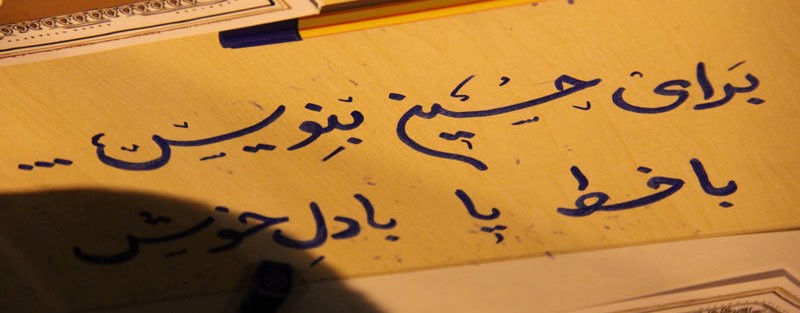 برای حسین بنویس...
با خط یا با دل خویش